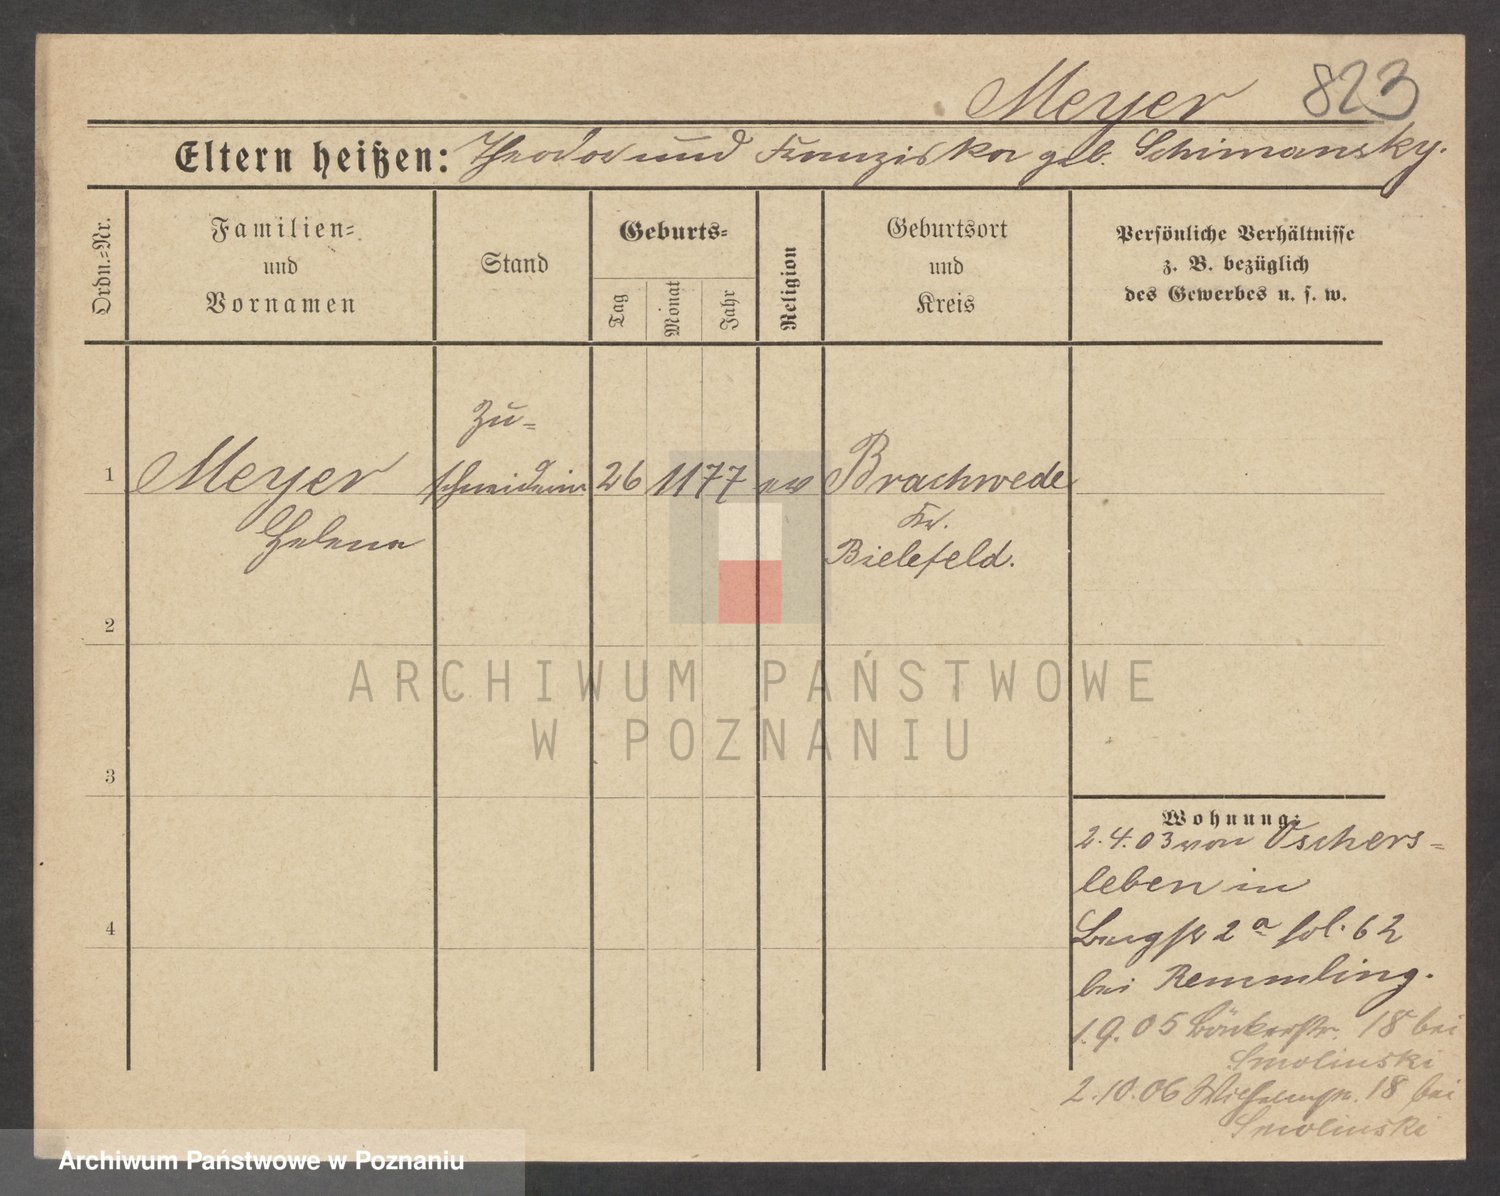 Meyer 823
Eltern heißen: Theodor und Franziska geb. Schimansky.
Ordn.-Nr.
Familien-
und
Vornamen
Stand
Geburts-
Tag
Monat
Jahr
Religion
Geburtsort
und
Kreis
Persönliche Verhältnisse
z. B. bezüglich
des Gewerbes u. s. w.
Zu-
1 Meyer schneiderin 26 11 77 ev Brachwede
Helena Kr.
Bielefeld.
2
3
4
Wohnung:
2.4.03 von Oschers-
leben in
Burgstr 2a fol. 62
bei Remmling.
1.9.05 Bäckerstr. 18 bei
Smolinski
2.10.06 Wilhelmstr. 18 bei
Smolinski
ARCHIWUM PAŃSTWOWE
W POZNANIU
Archiwum Państwowe w Poznaniu